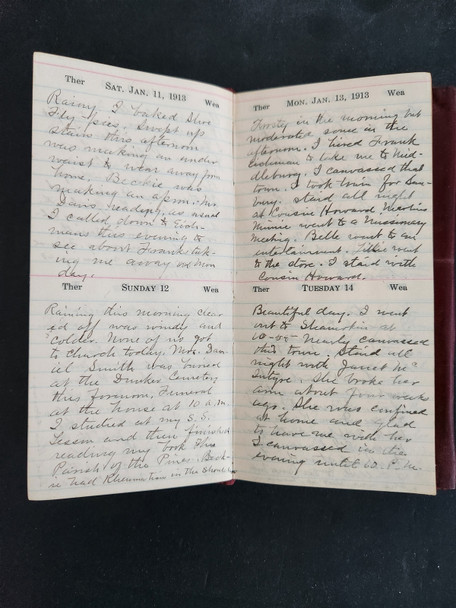 Ther SAT. JAN. 11, 1913 Wea
Rainy I baked Shoe
Fly pies & swept up
stairs this afternoon
was making an under
waist to wear away from
home, Beckie was
making an apron. Mr
Davis reading, as usual
I called down to Eish-
mans this evening to
see about Frank tak-
ing me away on Mon
day.
Ther SUNDAY 12 Wea
Raining this morning clear
ed off was windy and
colder. None of us got
to church today. Mrs. Dan-
iel Smith was buried
at the Dunker Cemetery
this forenoon, Funeral
at the house at 10 A.M.
I studied at my S.S.
Lesson and then finished
reading my book The
Parish of the Pines. Beck-
ie had Rheumatism in the Shoulder
Ther MON. JAN. 13, 1913 Wea
Frosty in the morning but
moderated some in the
afternoon. I hired Frank
Eishman to take me to Mid-
dleburg. I canvassed that
town. I took train for Sun-
bury. staid all night
at Cousin Howard
Minnie went to a Missionary
Meeting. Belle went to an
entertainment. Tillie went
to the store. I staid with
Cousin Howard.
Ther TUESDAY 14 Wea
Beautiful day. I went
out to Shamokin at
10-05 nearly canvassed
this town. Staid all
night with Janet Mc
Intyre. She broke her
arm about four weeks
ago. She was confined
at home and glad
to have me with her
I canvassed in the
evening until P.M.